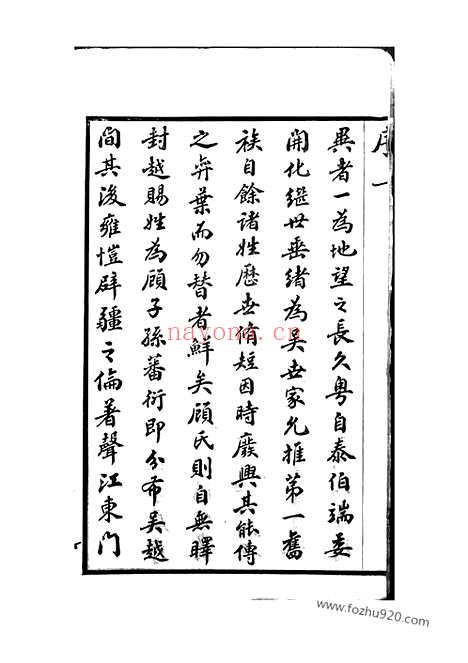 序一
異者一為地望之長久粵自泰伯端委
開化繼世垂緒為吳世家允推第一舊
族自餘諸姓歷世脩短因時廢興其能傳
之弈葉而勿替者鮮矣顧氏則自無曎
封越賜姓為顧子孫蕃衍即分布吳越
間其後雍愷辟疆之倫著聲江東門
nayona.cn
www.fozhu920.com